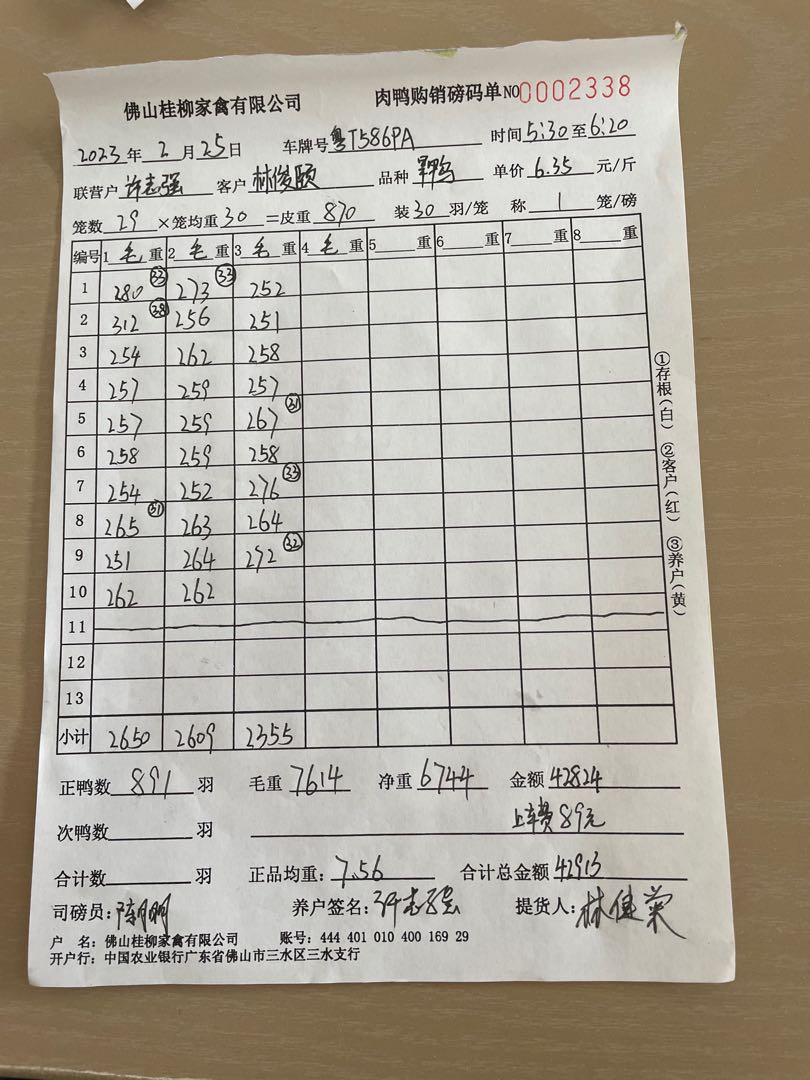 佛山桂柳家禽有限公司 肉鸭购销磅码单 NO 0002338
2023年2月25日 车牌号粤T586PA 时间5:30至6:20
联营户 许志强 客户 林俊颐 品种 单价 6.35 元/斤
笼数 29 ×笼均重 30 =皮重 870 装30羽/笼 称 1 笼/磅
编号 1 毛 重 2 毛 重 3 毛 重 4 毛 重 5 重 6 重 7 重 8 重
1 280 ㉝ 273 ㉝ 252
2 312 ㊳ 256 251
3 254 262 258
4 257 259 257
5 257 259 267 ㉛
6 258 259 258
7 254 252 276 ㉝
8 265 ㉛ 263 264
9 251 264 272 ㉜
10 262 262
11
12
13
小计 2650 2609 2355
正鸭数 891 羽 毛重 7614 净重 6744 金额 42824
次鸭数 羽 上车费89元
合计数 羽 正品均重: 7.56 合计总金额 42913
司磅员: 养户签名: 许志强 提货人: 林健荣
户 名: 佛山桂柳家禽有限公司 账号: 444 401 010 400 169 29
开户行: 中国农业银行广东省佛山市三水区三水支行
①存根(白) ②客户(红) ③养户(黄)